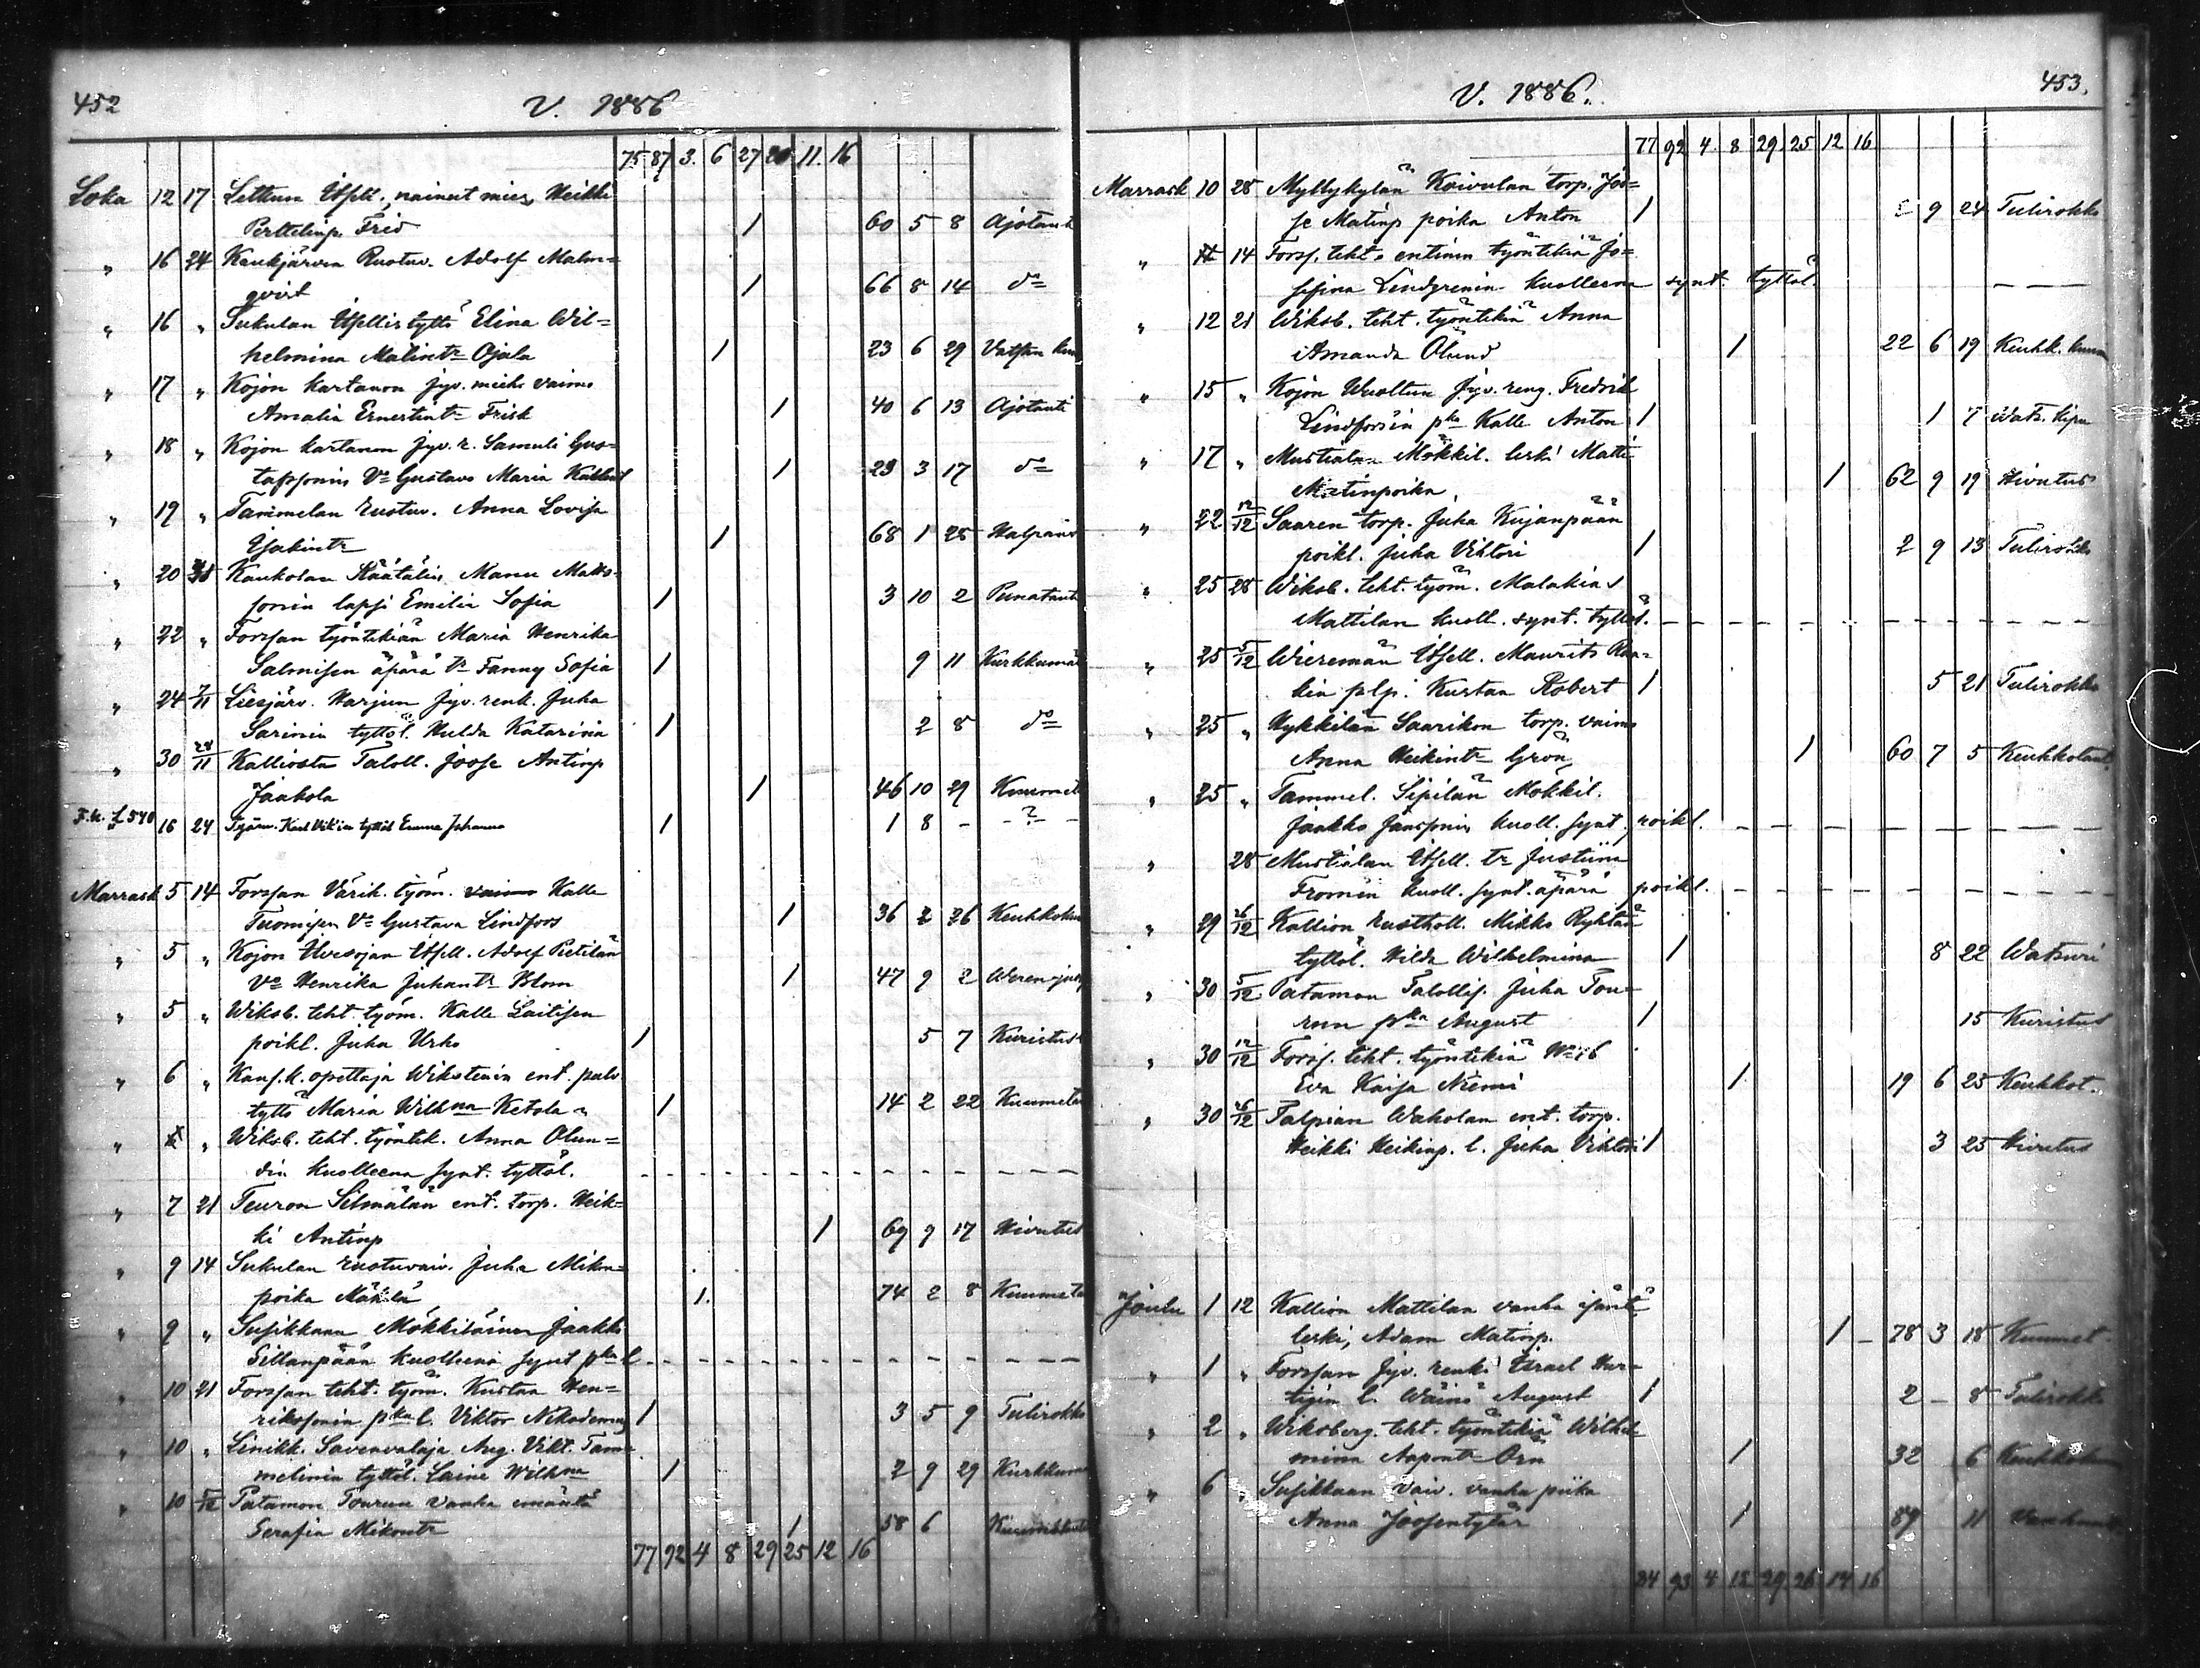 452
V. 1886
75 87 3. 6 27 20 11. 16
Loka 12 17 Lettum Itsell. nainut mies, Heikki
Perttelinp. Frid 1 60 5 8 Ajotauti
" 16 24 Kaukjärven Ruotuv. Adolf Malm=
qvist 1 66 8 14 do
" 16 " Sukulan Itsellistyttö Elina Wil=
helmina Matintr Ojala 1 23 6 29 Vatsan
" 17 " Kojon kartanon jyv. miehe vaimo
Amalia Ernestintr Frisk 1 40 6 13 Ajotauti
" 18 " Kojon kartanon jyv. r. Samuli Gus=
tafssonin Vo Gustava Maria 1 29 3 17 do
" 19 " Tammelan ruotuv. Anna Lovisa
Esakintr 1 68 1 28 Halvaus
" 20 31 Kaukolan Räätälin Manu Matts=
sonin lapsi Emilia Sofia 1 3 10 2 Punataut
" 22 " Forssan työntekiän Maria Henrika
Salmisen äpärä tr Fanny Sofia 1 9 11 Kurkkumä
" 24 7/11 Liesjärv. Harjun jyv. renk. Juha
Sarinin tyttöl. Hulda Katarina 1 2 8 do
" 30 28/11 Kalliosta Taloll. Joose Antinp
Jaakola 1 46 10 29 Kuumet
F.k. f 540 16 24 Työm. Karl Vik'in tyttöl Emma Johanna 1 1 8 - - ? -
Marrask 5 14 Forssan Värik. työm. vaimo Kalle
Tuomisen Vo Gustava Lindfors 1 36 2 26 Keuhkokuu
" 5 " Kojon Itsell. Adolf Pietilän
Vo Henrika Juhantr Blom 1 47 9 2 Weren-juok
" 5 " Wiksb. teht. työm. Kalle Laitisen
poikl. Juha Urho 1 5 7 Kuristus
" 6 " Kans. k. opettaja Wikstenin ent. palv.
tyttö Maria Wilhna Ketola 1 14 2 22 Kuumetau
" " Wiksb. teht. työntek. Anna Olun=
din kuolleena synt. tyttöl. - - - - - - -
" 7 21 Teuron Silmälän ent. torp. Heik=
ki Antinp 1 69 9 17 Hivutus
" 9 14 Sukulan ruotuvaiv. Juha Mikon=
poika Mäkelä 1. 74 2 8 Kuumeta
" 9 " Susikkaan Mökkiläinen Jaakko
Sillanpään kuolleena synt pka l. - - - - - - -
" 10 21 Forssan teht. työm. Kustaa Hen=
rikssonin pka l. Viktor Nikodemus 1 3 5 9 Tulirokko
" 10 " Linikk. Savenvalaja Aug. Vikt. Tam=
melinin tyttöl. Laine Wilhna 1 2 9 29 Kurkkum
" 10 5/12 Patamon Tourun vanha emäntä
Serafia Mikontr 1 58 6 Kuumetaut
77 92 4 8 29 25 12 16
453.
V. 1886.
77 92 4 8 29 25 12 16
Marrask 10 28 Myllykylän Koivulan torp. Joo=
se Matinp poika Anton 1 9 24 Tulirokko
" 11 14 Forss. teht. entinen työntekiä Jo=
sefina Lindgrenin kuolleena synt. tyttöl. - - -
" 12 21 Wiksb. teht. työntekiä Anna
Amanda Ölund 1 22 6 19 Keuhk. kuum
" 15 " Kojon Wuoltun jyv. reng. Fredrik
Lindforsin pka Kalle Anton 1 1 7 Wats. kipu
" 17 " Mustialan Mökkil. leski Matti
Matinpoika 1 62 9 19 Hivutus
" 22 12/12 Saaren torp. Juha Kujanpään
poikl. Juha Vihtori 1 2 9 13 Tulirokko
" 25 28 Wiksb. teht. työm. Malakias
Mattilan kuoll. synt. tyttöl. - - - - - - -
" 25 5/12 Wieremän Itsell. Maurits Raa=
kin plp. Kustaa Robert 1 5 21 Tulirokko
" 25 " Hykkilän Saarikon torp. vaimo
Anna Heikintr Grön 1 60 7 5 Keuhkotaut
" 25 " Tammel. Sipilän Mökkil.
Jaakko Jänssonin kuoll. synt. poikl. - - - - - - -
" 28 Mustialan Itsell. tr Justiina
Fromin kuoll. synt. äpärä poikl. - - - - - - -
" 29 26/12 Kallion rustholl. Mikko Ryhtän
tyttöl. Hilda Wilhelmina 1 8 22 Watsuri
" 30 5/12 Patamon Tallollis. Juha Tou=
run pka August 1 15 Kuristus
" 30 12/12 Forss. teht. työntekiä No 76
Eva Kaisa Niemi 1 19 6 25 Keuhkot.
" 30 26/12 Talpian Waholan ent. torp.
Heikki Heikinp. l. Juha Vihtori 1 3 25 Hivutus
Joulu 1 12 Kallion Mattilan vanha isäntä
leski, Adam Matinp. 1 - 78 3 18 Kuumet
" 1 " Forssan jyv. renki Israel Hur=
tigin l. Wäinö August 1 2 - 8 Tulirokko
" 2 " Wiksberg. teht. työntekiä Wilhel=
mina Aapontr Örn 1 32 6 Keuhkoku
" 6 " Susikkaan vaiv. vanha piika
Anna Joosentytär 1 89 11 Vanhuus
84 93 4 12 29 26 14 16